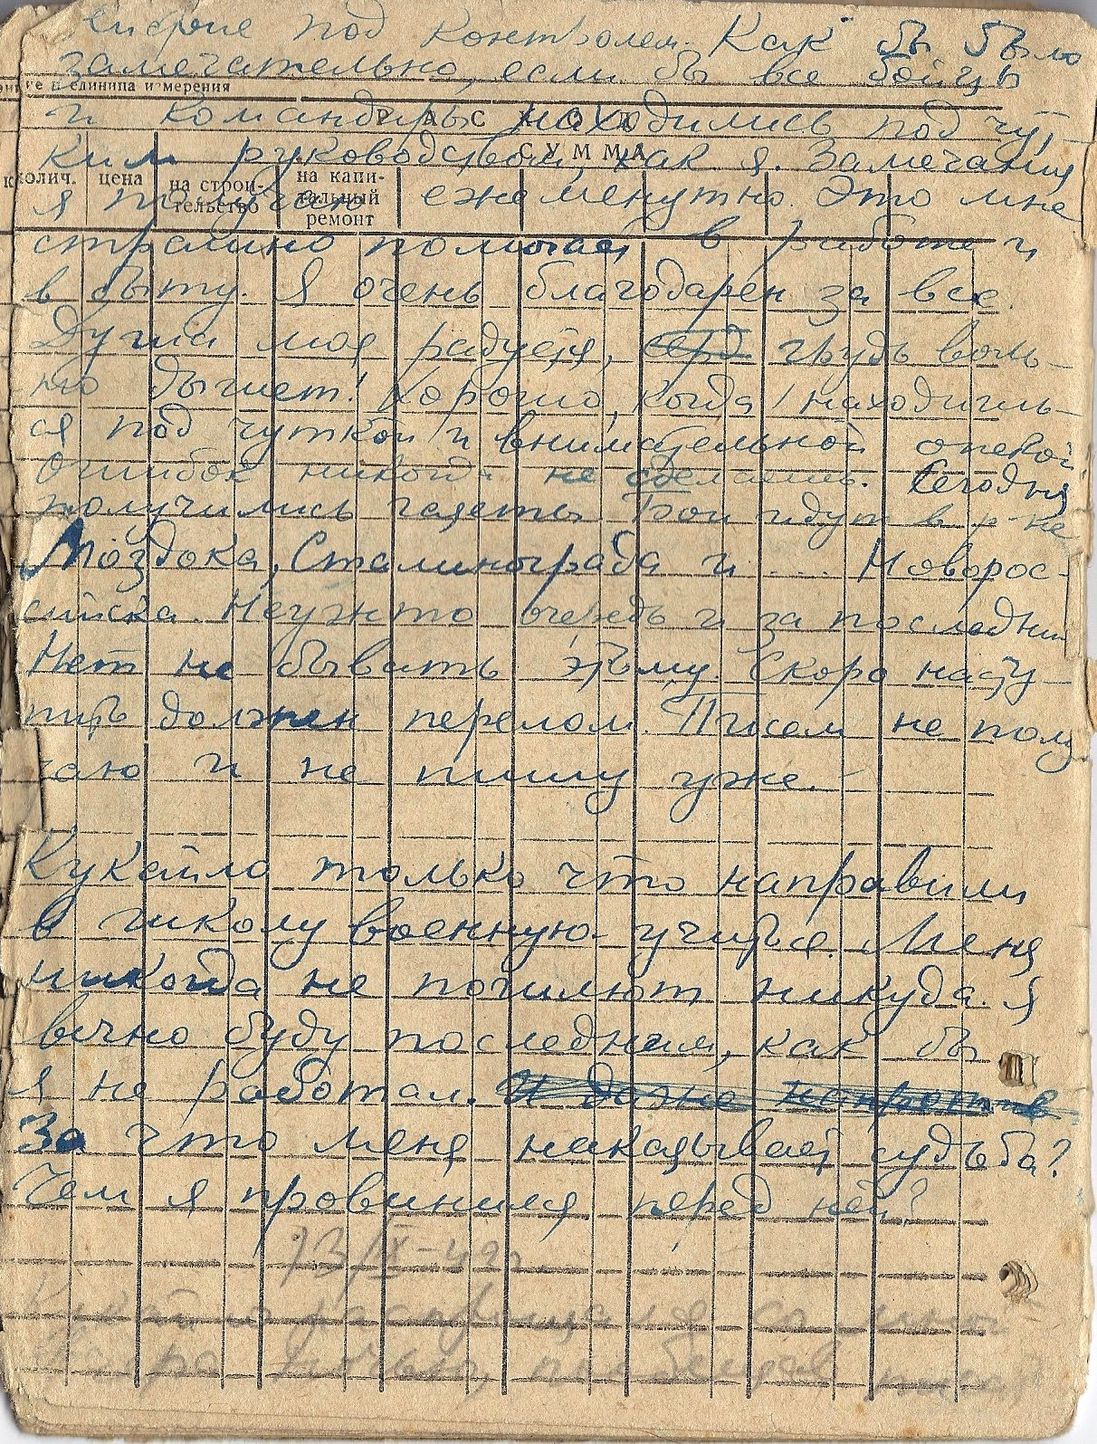 под контролем. Как бы было
замечательно, если бы все бойцы
и единица измерения
и командиры находились под чут-
РАСХОД
ким руководством как я. Замечания
СУММА
колич. цена на строи-тельство на капи-тальный ремонт
я получаю ежеменутно. Это мне
страшно помогает в работе и
в быту. Я очень благодарен за все.
Душа моя радуется, серд грудь воль-
но дышет! Хорошо, когда находишь-
ся под чуткой и внимательной опекой
ошибок никогда не сделаешь. Сегодня
получились газеты. Бои идут в р-не
Моздока, Сталинграда и ... Новорос-
сийска. Неужто очередь и за последним
Нет не бывать этому. Скоро насту-
пить должен перелом. Писем не полу
чаю и не пишу уже.
Кукайло только что направили
в школу военную учиться. Меня
никогда не пошлют никуда. Я
вечно буду последним, как бы
я не работал. И даже напротив
За что меня наказывает судьба?
Чем я провинился перед ней?
13/IX-42г.
распрощался со мной
ночью,